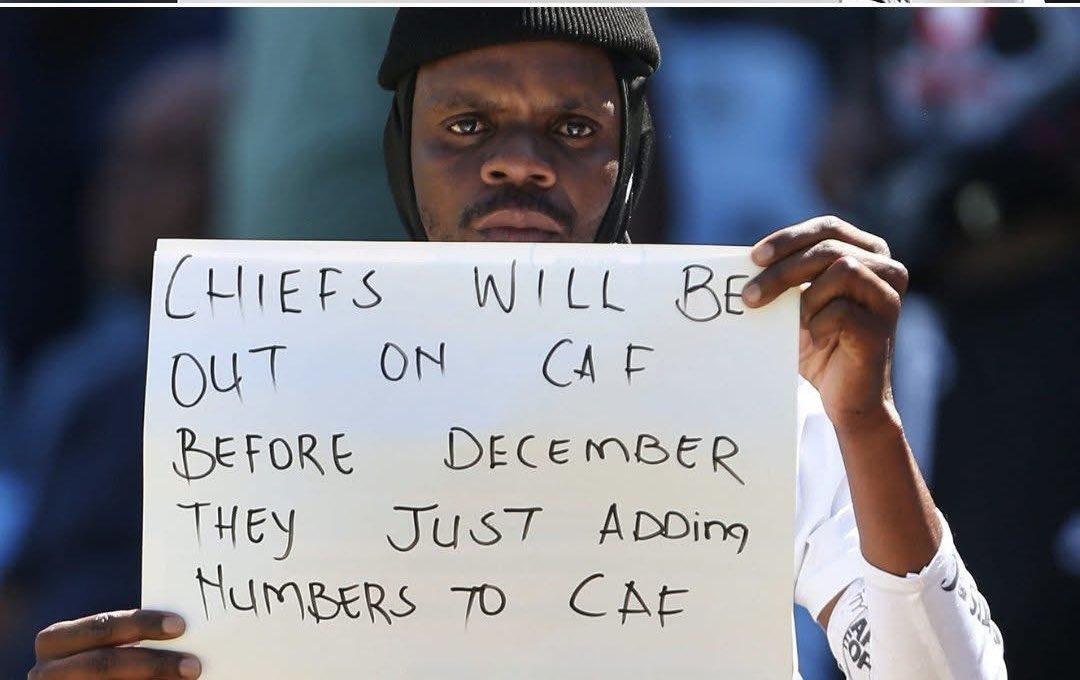 CHIEFS WILL BE
OUT ON CAF
BEFORE DECEMBER
THEY JUST ADDing
NUMBERS TO CAF